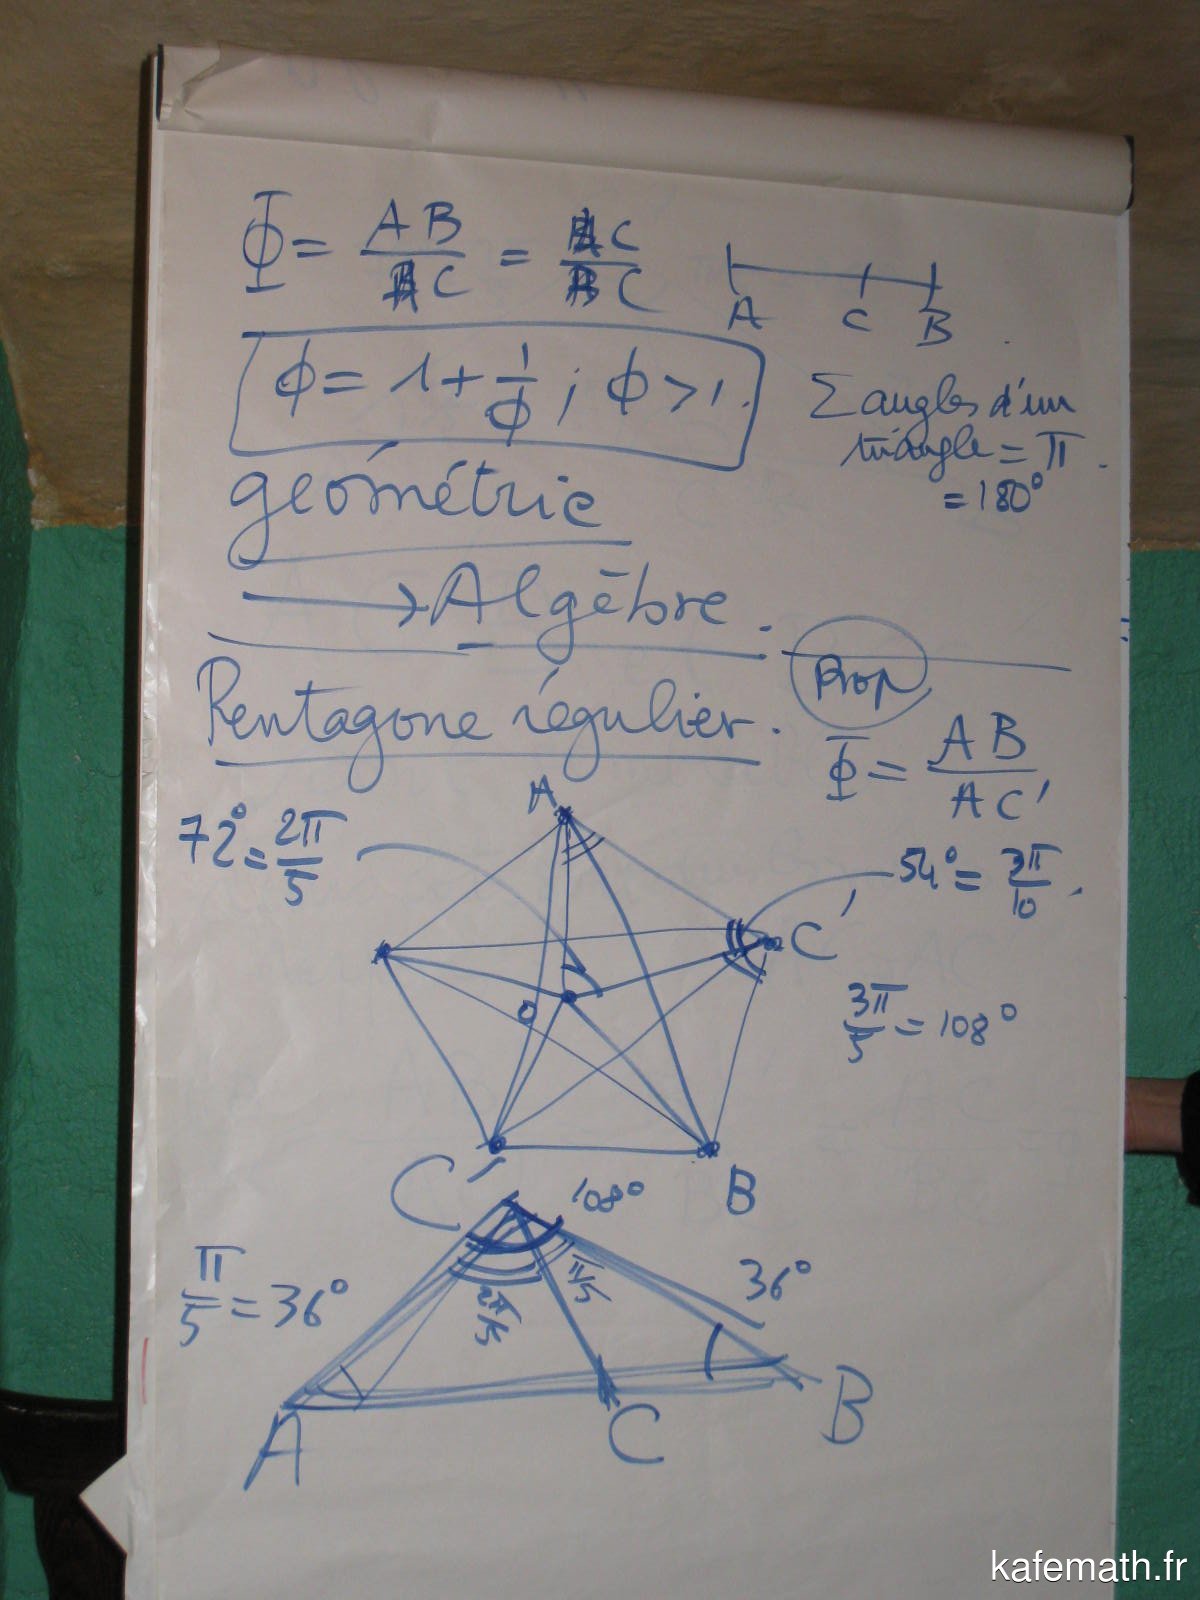 Φ = AB/AC = AC/BC
A C B
ϕ = 1 + 1/ϕ ; ϕ > 1.
Σ angles d'un
triangle = π
= 180°
géométrie
→ Algèbre.
Prop
Pentagone régulier.
Φ = AB/AC'
A
72° = 2π/5
54° = 3π/10.
C'
O
3π/5 = 108°
B
C'
108°
π/5 = 36°
2π/5
π/5
36°
A
C
B
kafemath.fr